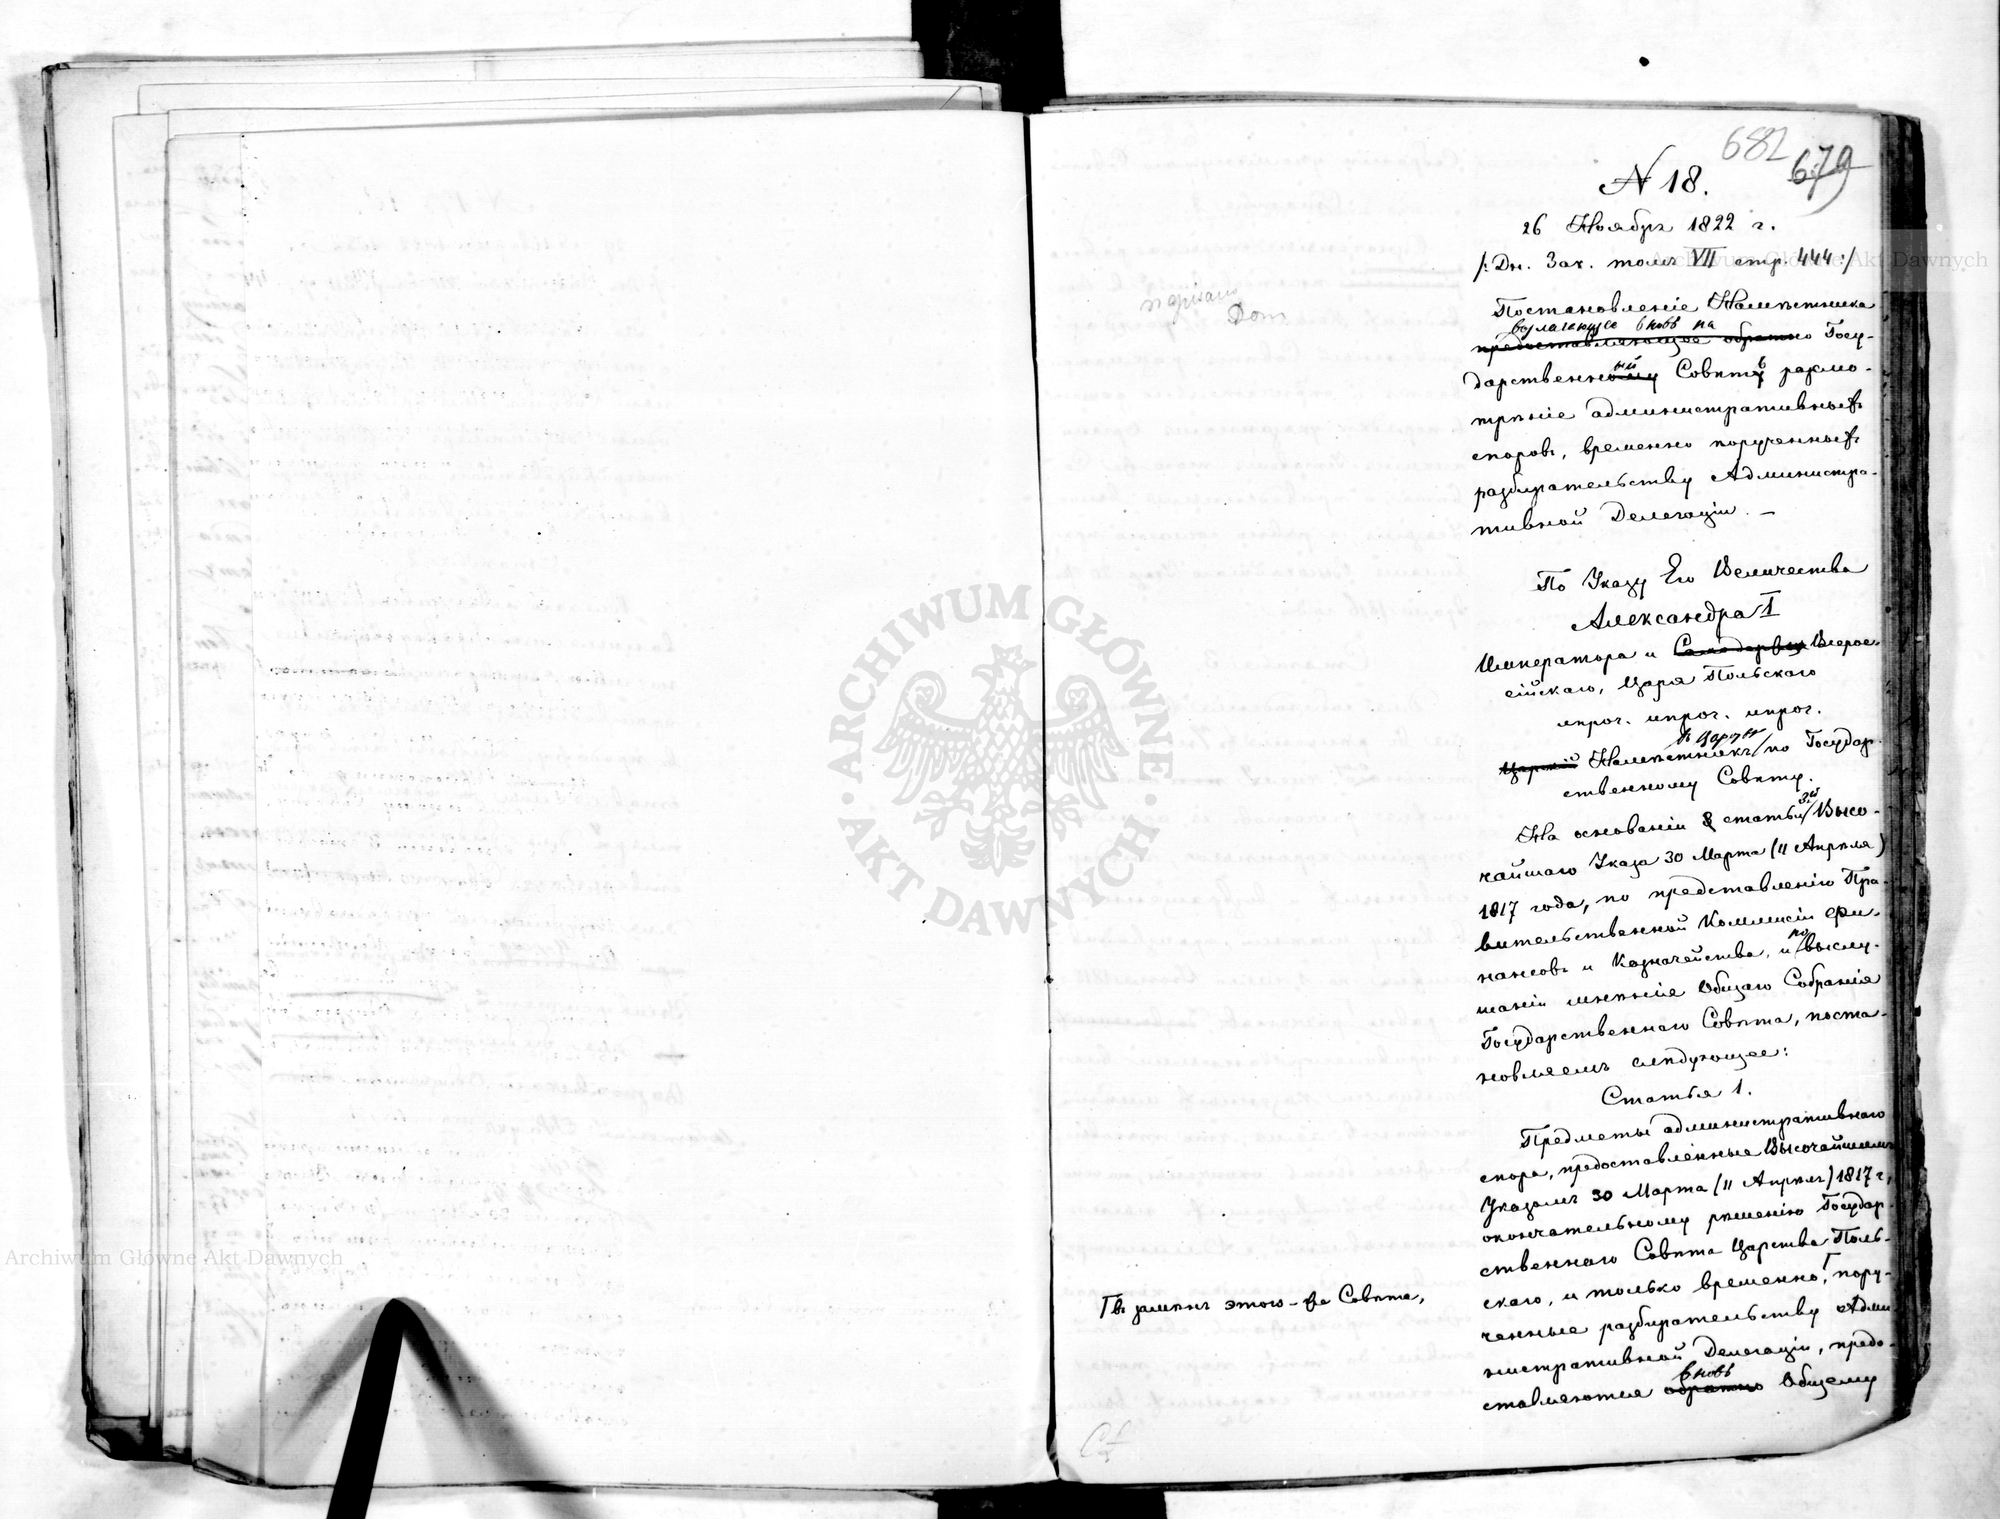 682 679
N 18.
26 Ноября 1822 г.
/: Дн. Зак. томъ VII стр. 444:/
написано
Постановленіе Намѣстника
возлагающее вновь на
предоставляющее обратно Госу-
дарственному ый Совѣтъ разсмо-
трѣніе административныхъ
споровъ, временно порученныхъ
разбирательству Администра-
тивной Делегаціи. —
По Указу Его Величества
Александра I
Императора и Самодержца Всерос-
сійскаго, Царя Польскаго
ипроч. ипроч. ипроч.
въ Царствѣ
Царскій Намѣстникъ по Государ-
ственному Совѣту.
На основаніи 3 статьи 3й Высо-
чайшаго Указа 30 Марта (11 Апрѣля)
1817 года, по представленію Пра-
вительственной Коммисіи Фи-
нансовъ и Казначейства, и по выслу-
шаніи мнѣнія Общаго Собранія
Государственнаго Совѣта, поста-
новляемъ слѣдующее:
Статья 1.
Предметы административнаго
спора, предоставленные Высочайшимъ
Указомъ 30 Марта (11 Апрѣля) 1817 г.,
окончательному рѣшенію Государ-
ственнаго Совѣта Царства Поль-
скаго, и только временно, Г пору-
Г въ замѣнъ этого-же Совѣта,
ченные разбирательству Адми-
нистративной Делегаціи, предо-
вновь
ставляются обратно Общему
ARCHIWUM GŁÓWNE AKT DAWNYCH
Archiwum Główne Akt Dawnych
Archiwum Główne Akt Dawnych